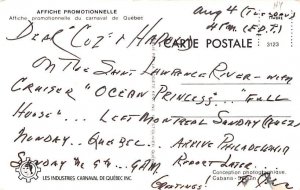 AFFICHE PROMOTIONNELLE
Affiche promotionnelle du carnaval de Québec
Aug 4 (Tuesday)
4 P.M. (E.D.T.)
Dear "Coz" &
CARTE POSTALE
3123
On the Saint Lawrence River - with
Cruiser "Ocean Princess"... "Full
House"... Left Montreal Sunday
Monday.. Quebec... Arrive Philadelphia
Sunday the 9th - 9AM. Report Later.
LES INDUSTRIES CARNAVAL DE QUÉBEC INC.
Conception photographique
"Greetings!"